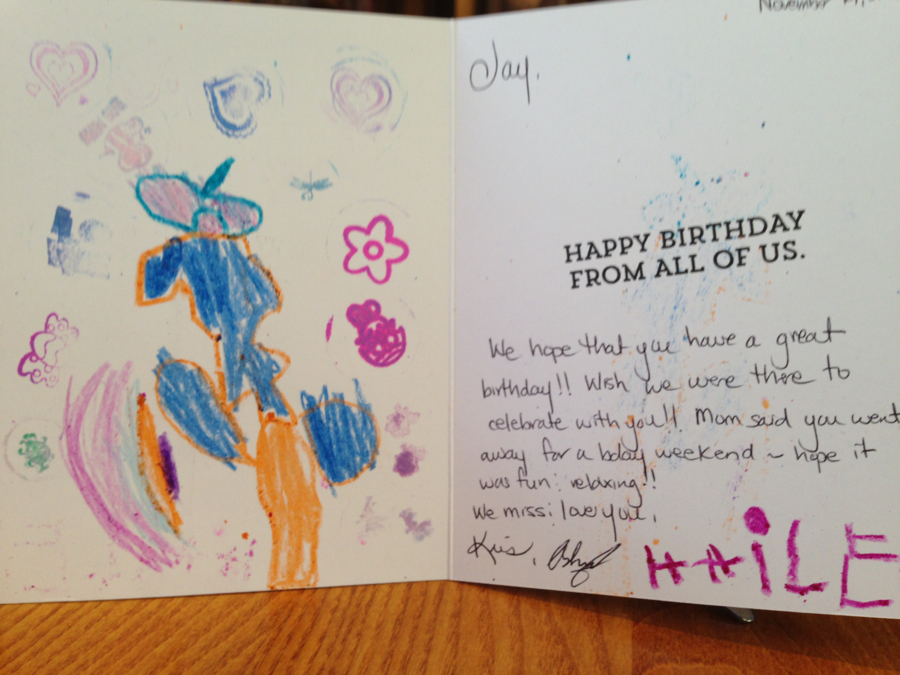 November
Jay,
HAPPY BIRTHDAY
FROM ALL OF US.
We hope that you have a great
birthday!! Wish we were there to
celebrate with you!! Mom said you went
away for a bday weekend ~ hope it
was fun & relaxing!!
We miss & love you,
Kris,
HAILE